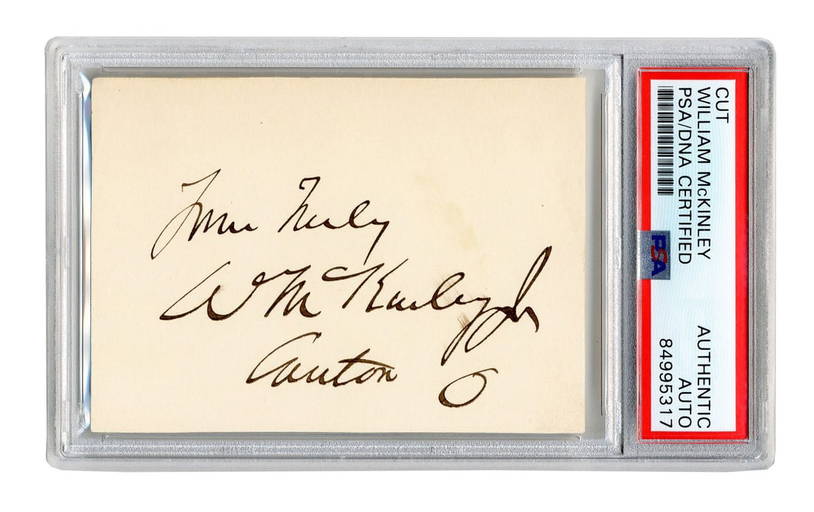 Yours Truly
W McKinley Jr
Canton O
CUT
WILLIAM McKINLEY
PSA/DNA CERTIFIED
PSA
AUTHENTIC
AUTO
84995317